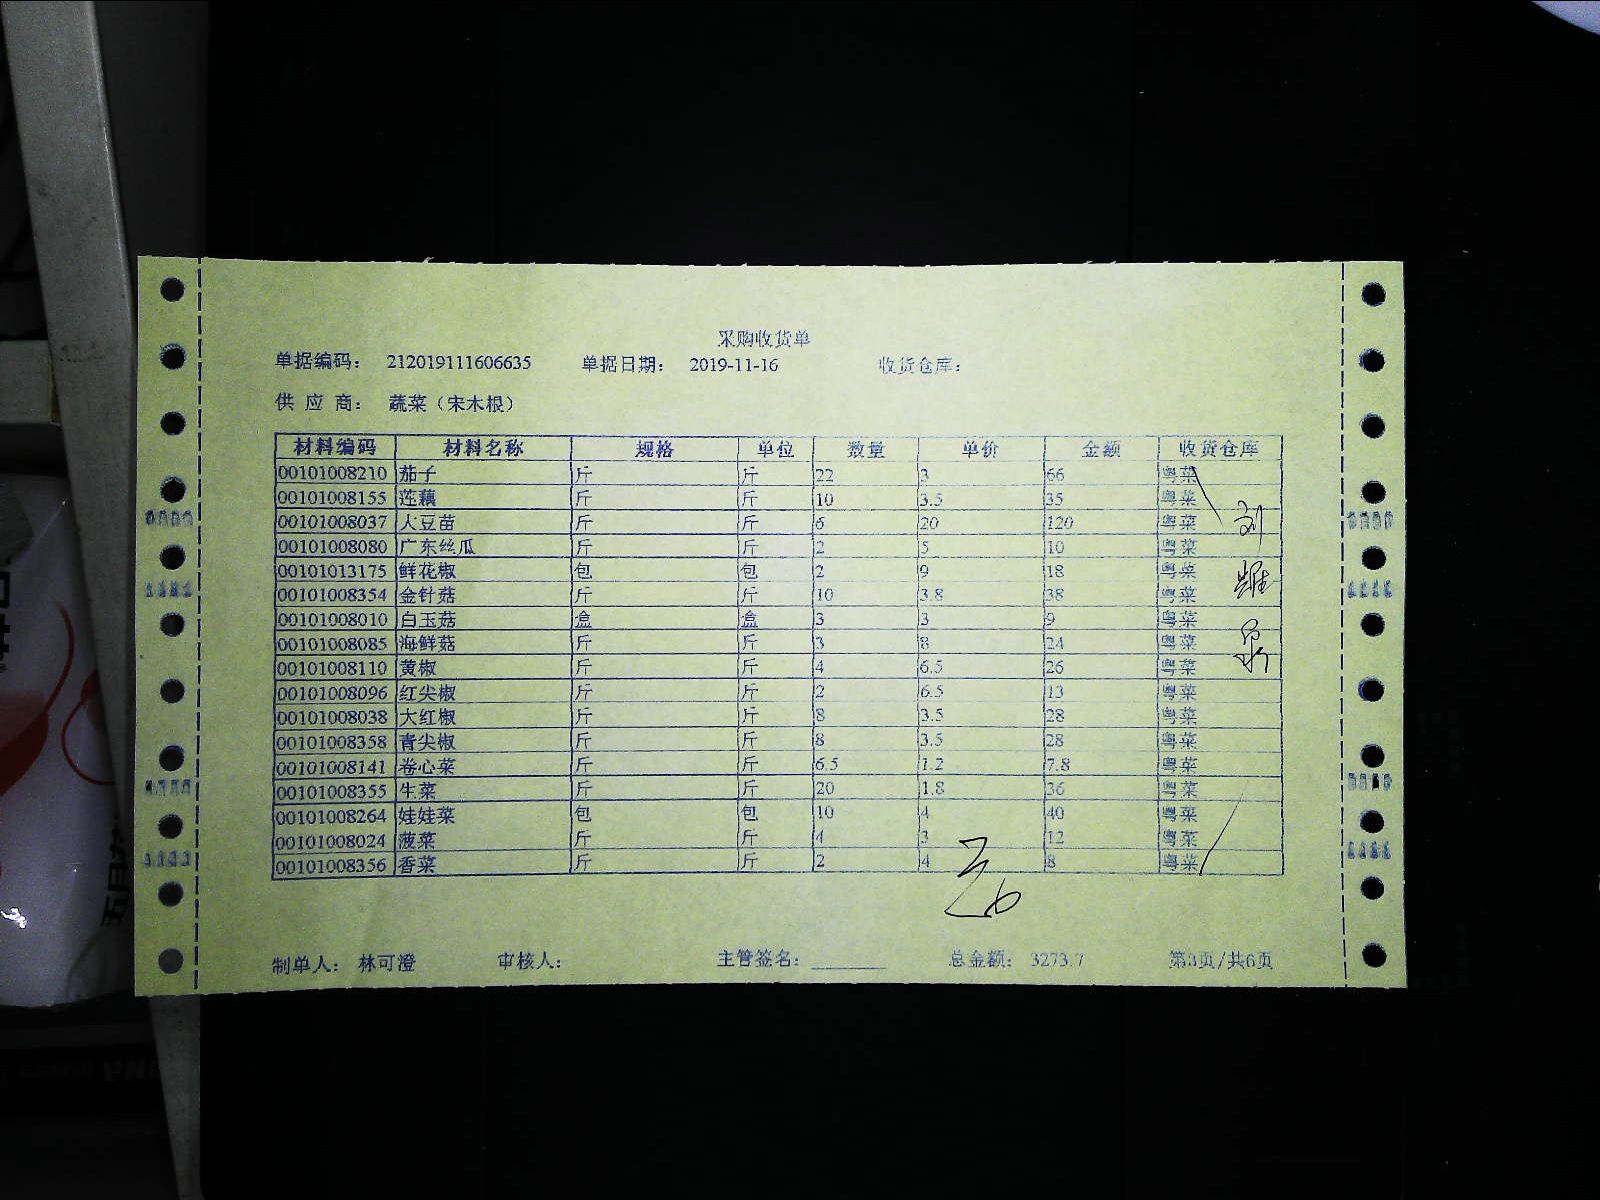 采购收货单
单据编码: 212019111606635 单据日期: 2019-11-16 收货仓库:
供 应 商: 蔬菜（宋木根）
材料编码 材料名称 规格 单位 数量 单价 金额 收货仓库
00101008210 茄子 斤 斤 22 3 66 粤菜
00101008155 莲藕 斤 斤 10 3.5 35 粤菜
00101008037 大豆苗 斤 斤 6 20 120 粤菜
00101008080 广东丝瓜 斤 斤 2 5 10 粤菜
00101013175 鲜花椒 包 包 2 9 18 粤菜
00101008354 金针菇 斤 斤 10 3.8 38 粤菜
00101008010 白玉菇 盒 盒 3 3 9 粤菜
00101008085 海鲜菇 斤 斤 3 8 24 粤菜
00101008110 黄椒 斤 斤 4 6.5 26 粤菜
00101008096 红尖椒 斤 斤 2 6.5 13 粤菜
00101008038 大红椒 斤 斤 8 3.5 28 粤菜
00101008358 青尖椒 斤 斤 8 3.5 28 粤菜
00101008141 卷心菜 斤 斤 6.5 1.2 7.8 粤菜
00101008355 生菜 斤 斤 20 1.8 36 粤菜
00101008264 娃娃菜 包 包 10 4 40 粤菜
00101008024 菠菜 斤 斤 4 3 12 粤菜
00101008356 香菜 斤 斤 2 4 8 粤菜
制单人: 林可澄 审核人: 主管签名: 总金额: 3273.7 第3页/共6页